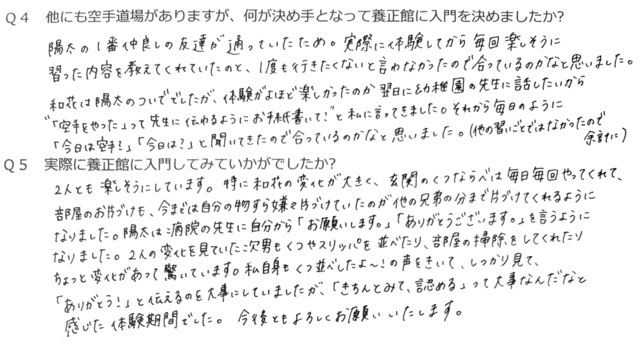 Q４　他にも空手道場がありますが、何が決め手となって養正館に入門を決めましたか?
陽太の1番仲良しの友達が通っていたため。実際に体験してから毎回楽しそうに
習った内容を教えてくれていたのと、1度も行きたくないと言わなかったので合っているのかなと思いました。
和花は陽太のついででしたが、体験がよほど楽しかったのか翌日に幼稚園の先生に話したいから
"「空手をやった」って先生に伝わるようにお手紙書いて!"と私に言ってきました。それから毎日のように
「今日は空手!」「今日は?」と聞いてきたので合っているのかなと思いました。(他の習いごとではなかったので
余計に)
Q５　実際に養正館に入門してみていかがでしたか?
2人とも楽しそうにしています。特に和花の変化が大きく、玄関のくつならべは毎日毎回やってくれて、
部屋のお片づけも、今までは自分の物すら嫌々片づけていたのが他の兄弟の分まで片づけてくれるように
なりました。陽太は病院の先生に自分から「お願いします。」「ありがとうございます。」を言うように
なりました。2人の変化を見ていた次男もくつやスリッパを並べたり、部屋の掃除をしてくれたり
ちょっと変化があって驚いています。私自身もくつ並べしたよ〜!の声をきいて、しっかり見て、
「ありがとう!」と伝えるのを大事にしていましたが、「きちんとみて、認める」って大事なんだなと
感じた体験期間でした。今後ともよろしくお願いいたします。